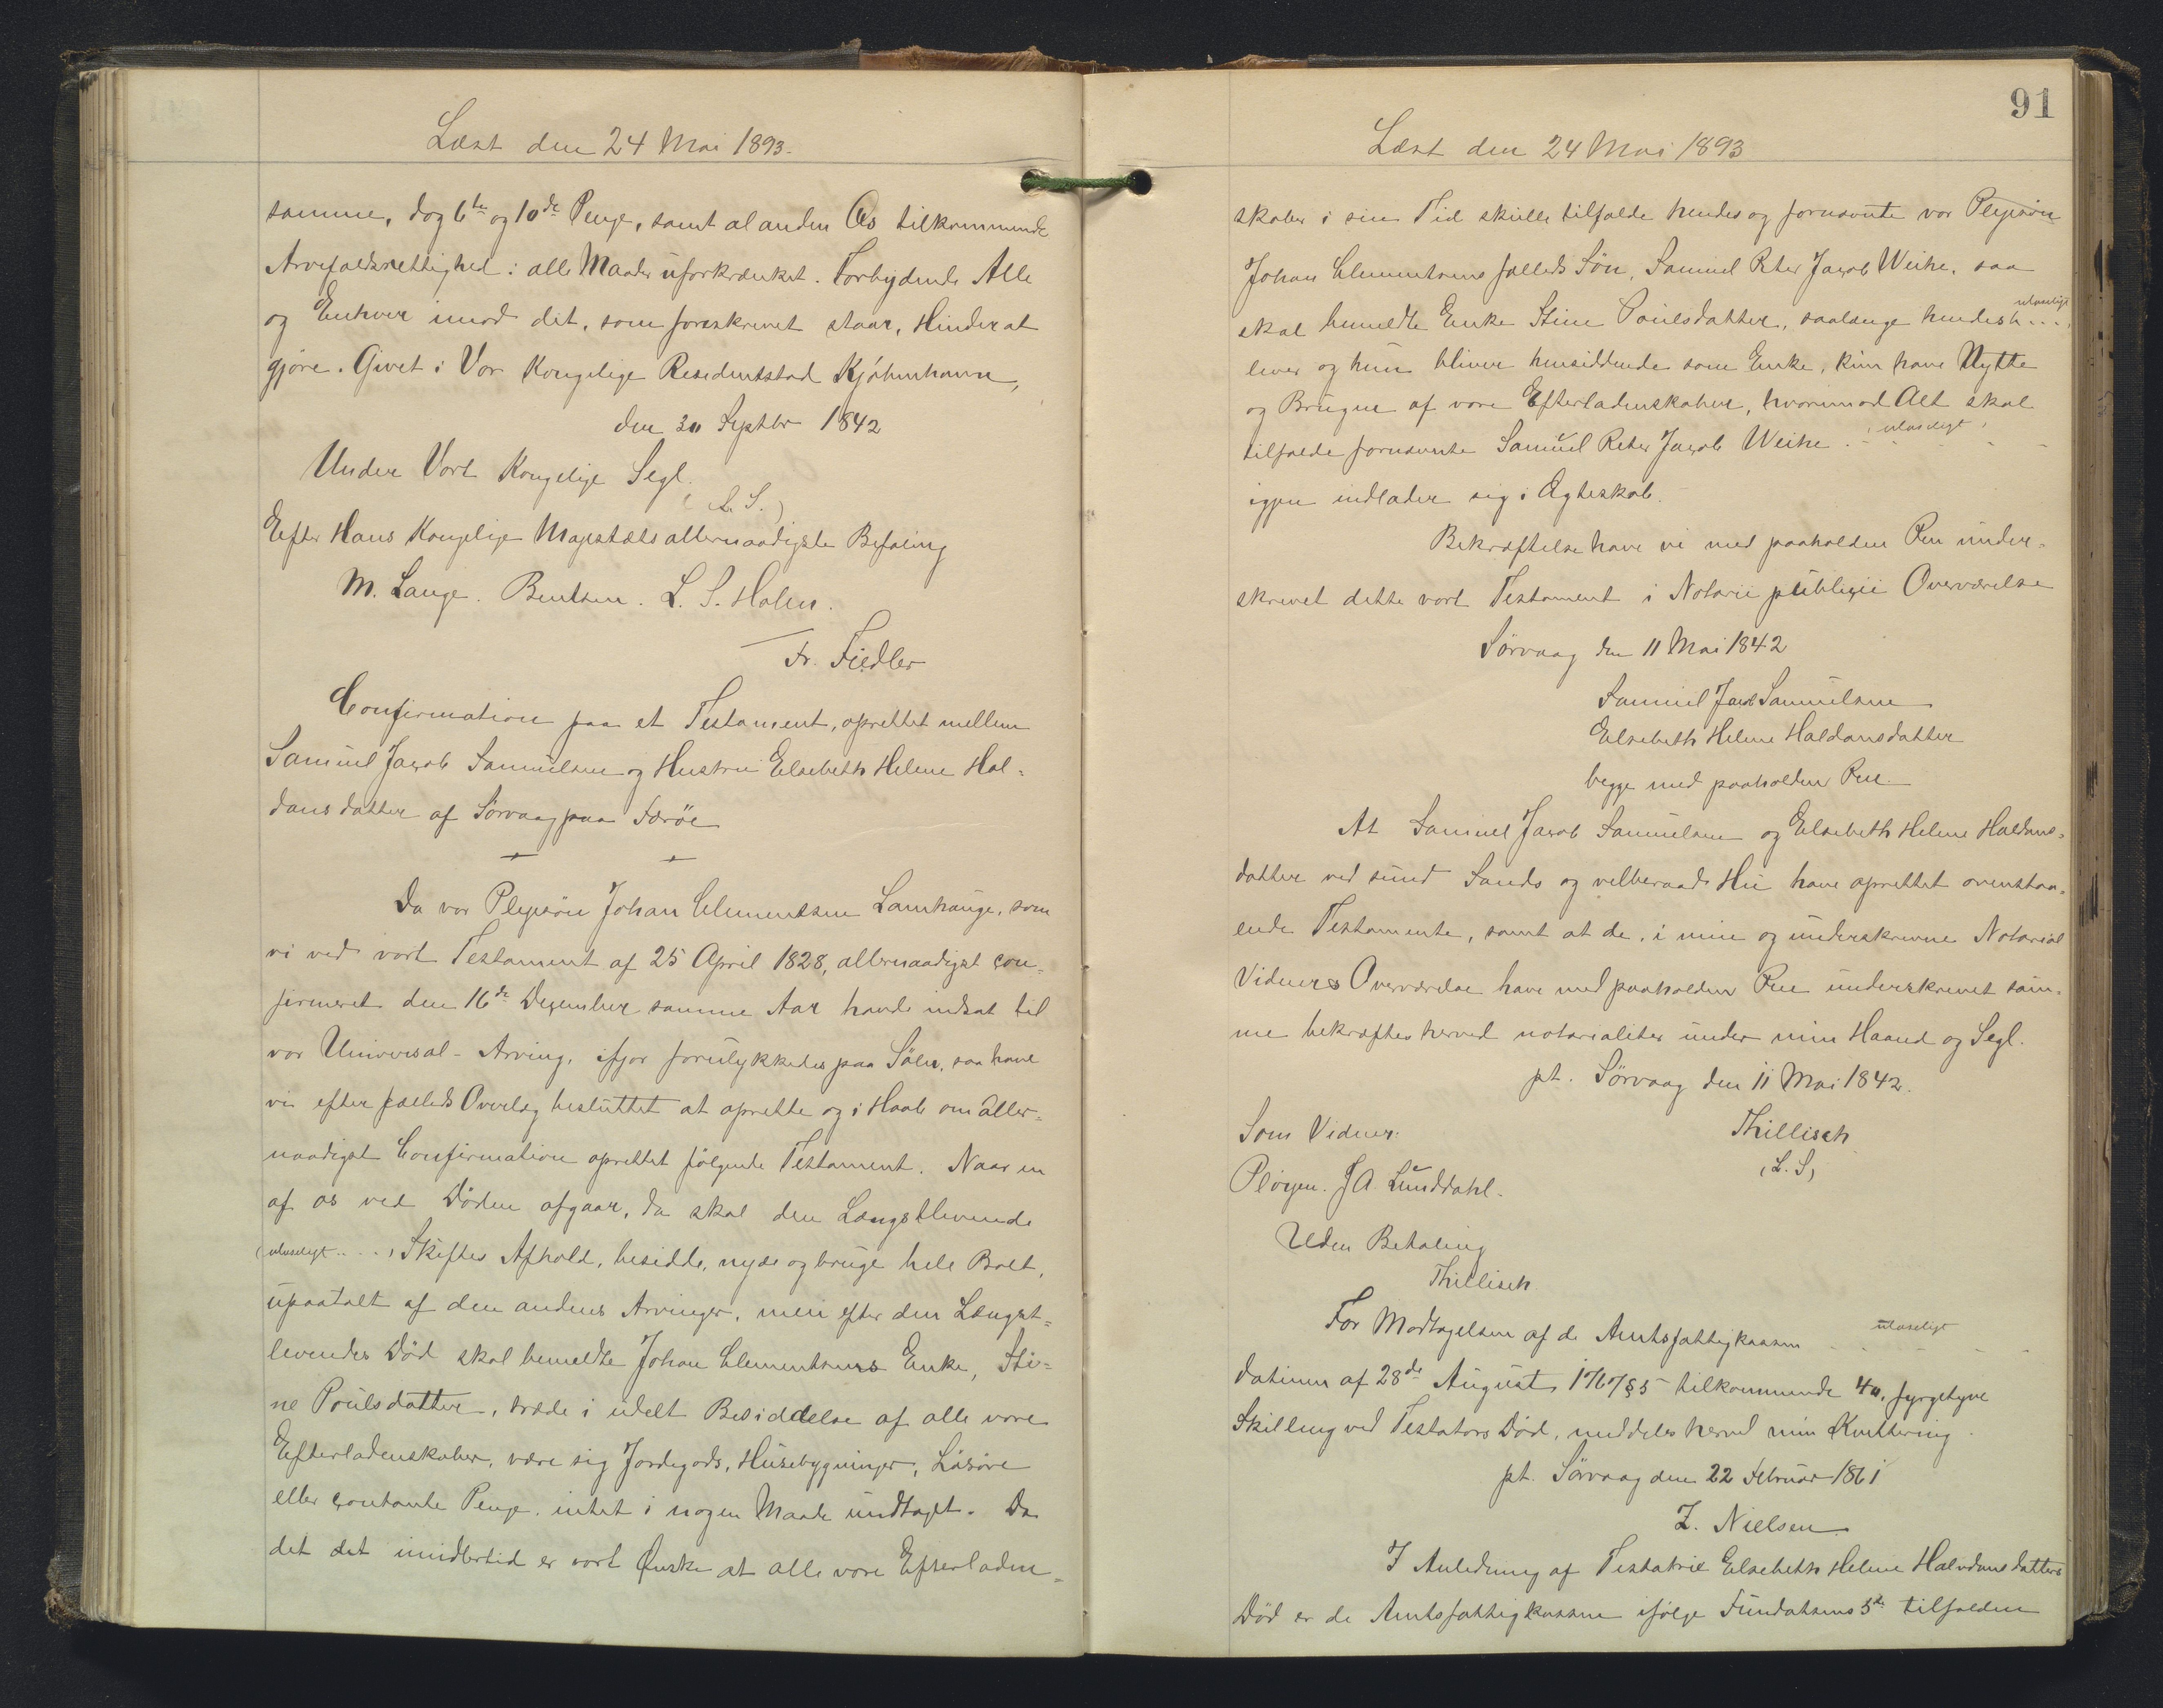 Læst den 24 Mai 1893.
samme, dog 6te og 10de Penge, samt al anden Os tilkommende
Arvefaldsrettighed i alle Maader uforkrænket. Forbydende Alle
og Enhver imod det, som foreskrevet staar, Hinder at
gjøre. Givet i Vor Kongelige Residentsstad Kjøbenhavn,
den 30 Septbr 1842
Under Vort Kongelige Segl.
(L. S.)
Efter Hans Kongelige Majestæts allernaadigste Befaling
M. Lange. Bentsen. L. S. Holm.
Fr. Fiedler
Confirmation paa et Testament, oprettet mellem
Samuel Jacob Samuelsen og Hustru Elsebeth Helene Hal-
dansdatter af Sørvaag paa Færöe
Da vor Plejesön Johan Clementsen Lamhauge, som
vi ved vort Testament af 25 April 1828, allernaadigst con-
firmeret den 16de December samme Aar havde indsat til
vor Universal-Arving, ifjor forulykkedes paa Söen, saa have
vi efter fælleds Overlæg besluttet at oprette og i Haab om aller-
naadigst Confirmation oprettet fölgende Testament. Naar en
af os ved Döden afgaar, da skal den Længstlevende
(ulæseligt....) Skiftes Afhold, besidde, nyde og bruge hele Boet,
upaatalt af den andens Arvinger, men efter den Længst-
levendes Död skal bemeldte Johan Clementsens Enke, Sti-
ne Poulsdatter, træde i udelt Besiddelse af alle vore
Efterladenskaber, være sig Jordegods, Husebygninger, Lösöre
eller contante Penge, intet i nogen Maade undtaget. Da
det det imidlertid er vort Ønske at alle vore Efterladen-
91
Læst den 24 Mai 1893
skaber i sin Tid skulle tilfalde hendes og fornævnte vor Plejesön
Johan Clementsens fælleds Sön, Samuel Peter Jacob Weihe, saa
skal bemeldte Enke Stine Poulsdatter, saalænge hendes h.... ulæseligt
lever og hun bliver hensiddende som Enke, kun have Nytte
og Brugen af vore Efterladenskaber, hvorimod Alt skal
tilfalde fornævnte Samuel Peter Jacob Weihe . - (ulæseligt) - -
igjen indlader sig i Ægteskab.
Bekræftelse have vi med paaholden Pen under-
skrevet dette vort Testament i Notarii publicii Overværelse
Sörvaag den 11 Mai 1842
Samuel Jacob Samuelsen
Elsebeth Helene Haldansdatter
begge med paaholden Pen.
At Samuel Jacob Samuelsen og Elsebeth Helene Haldans-
datter ved sund Sands og velberaad Hu have oprettet ovenstaa-
ende Testamente, samt at de, i min og underskrevne Notarial
Vidners Overværelse have med paaholden Pen underskrevet sam-
me bekræftes herved notarialiter under min Haand og Segl.
pt. Sörvaag den 11 Mai 1842.
Som Vidner: Thillisch
Plöyen. J A. Lunddahl. (L. S)
Uden Betaling
Thillisch
For Modtagelsen af de Amtsfattigkassen . . ulæseligt - -
dationen af 28de August 1767 § 5 tilkommende 40, fyrgetyve
Skilling ved Testators Död, meddeles herved min Kvittering.
pt. Sörvaag den 22 Februar 1861
Z. Nielsen.
I Anledning af Testatrix Elsebeth Helene Halvdansdatters
Död er de Amtsfattigkassen ifølge Fundatsens 5te tilfalden